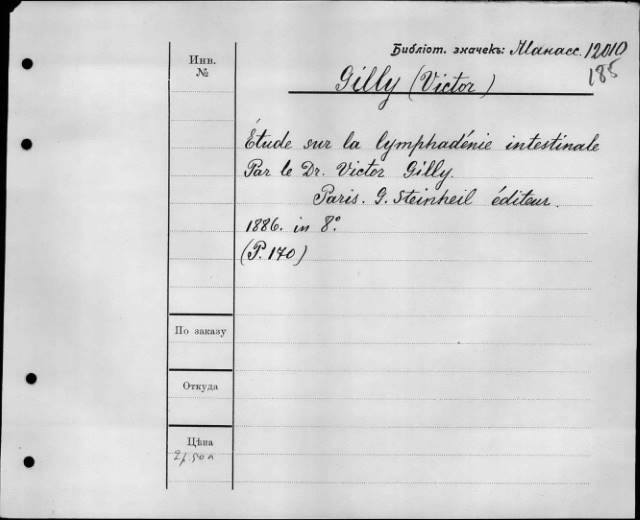 Библіот. значекъ: Манасс. 12010
185
Инв.
№
Gilly (Victor)
Étude sur la lymphadénie intestinale
Par le Dr. Victor Gilly.
Paris. G. Steinheil éditeur.
1886. in 8°.
(P. 170)
По заказу
Откуда
Цѣна